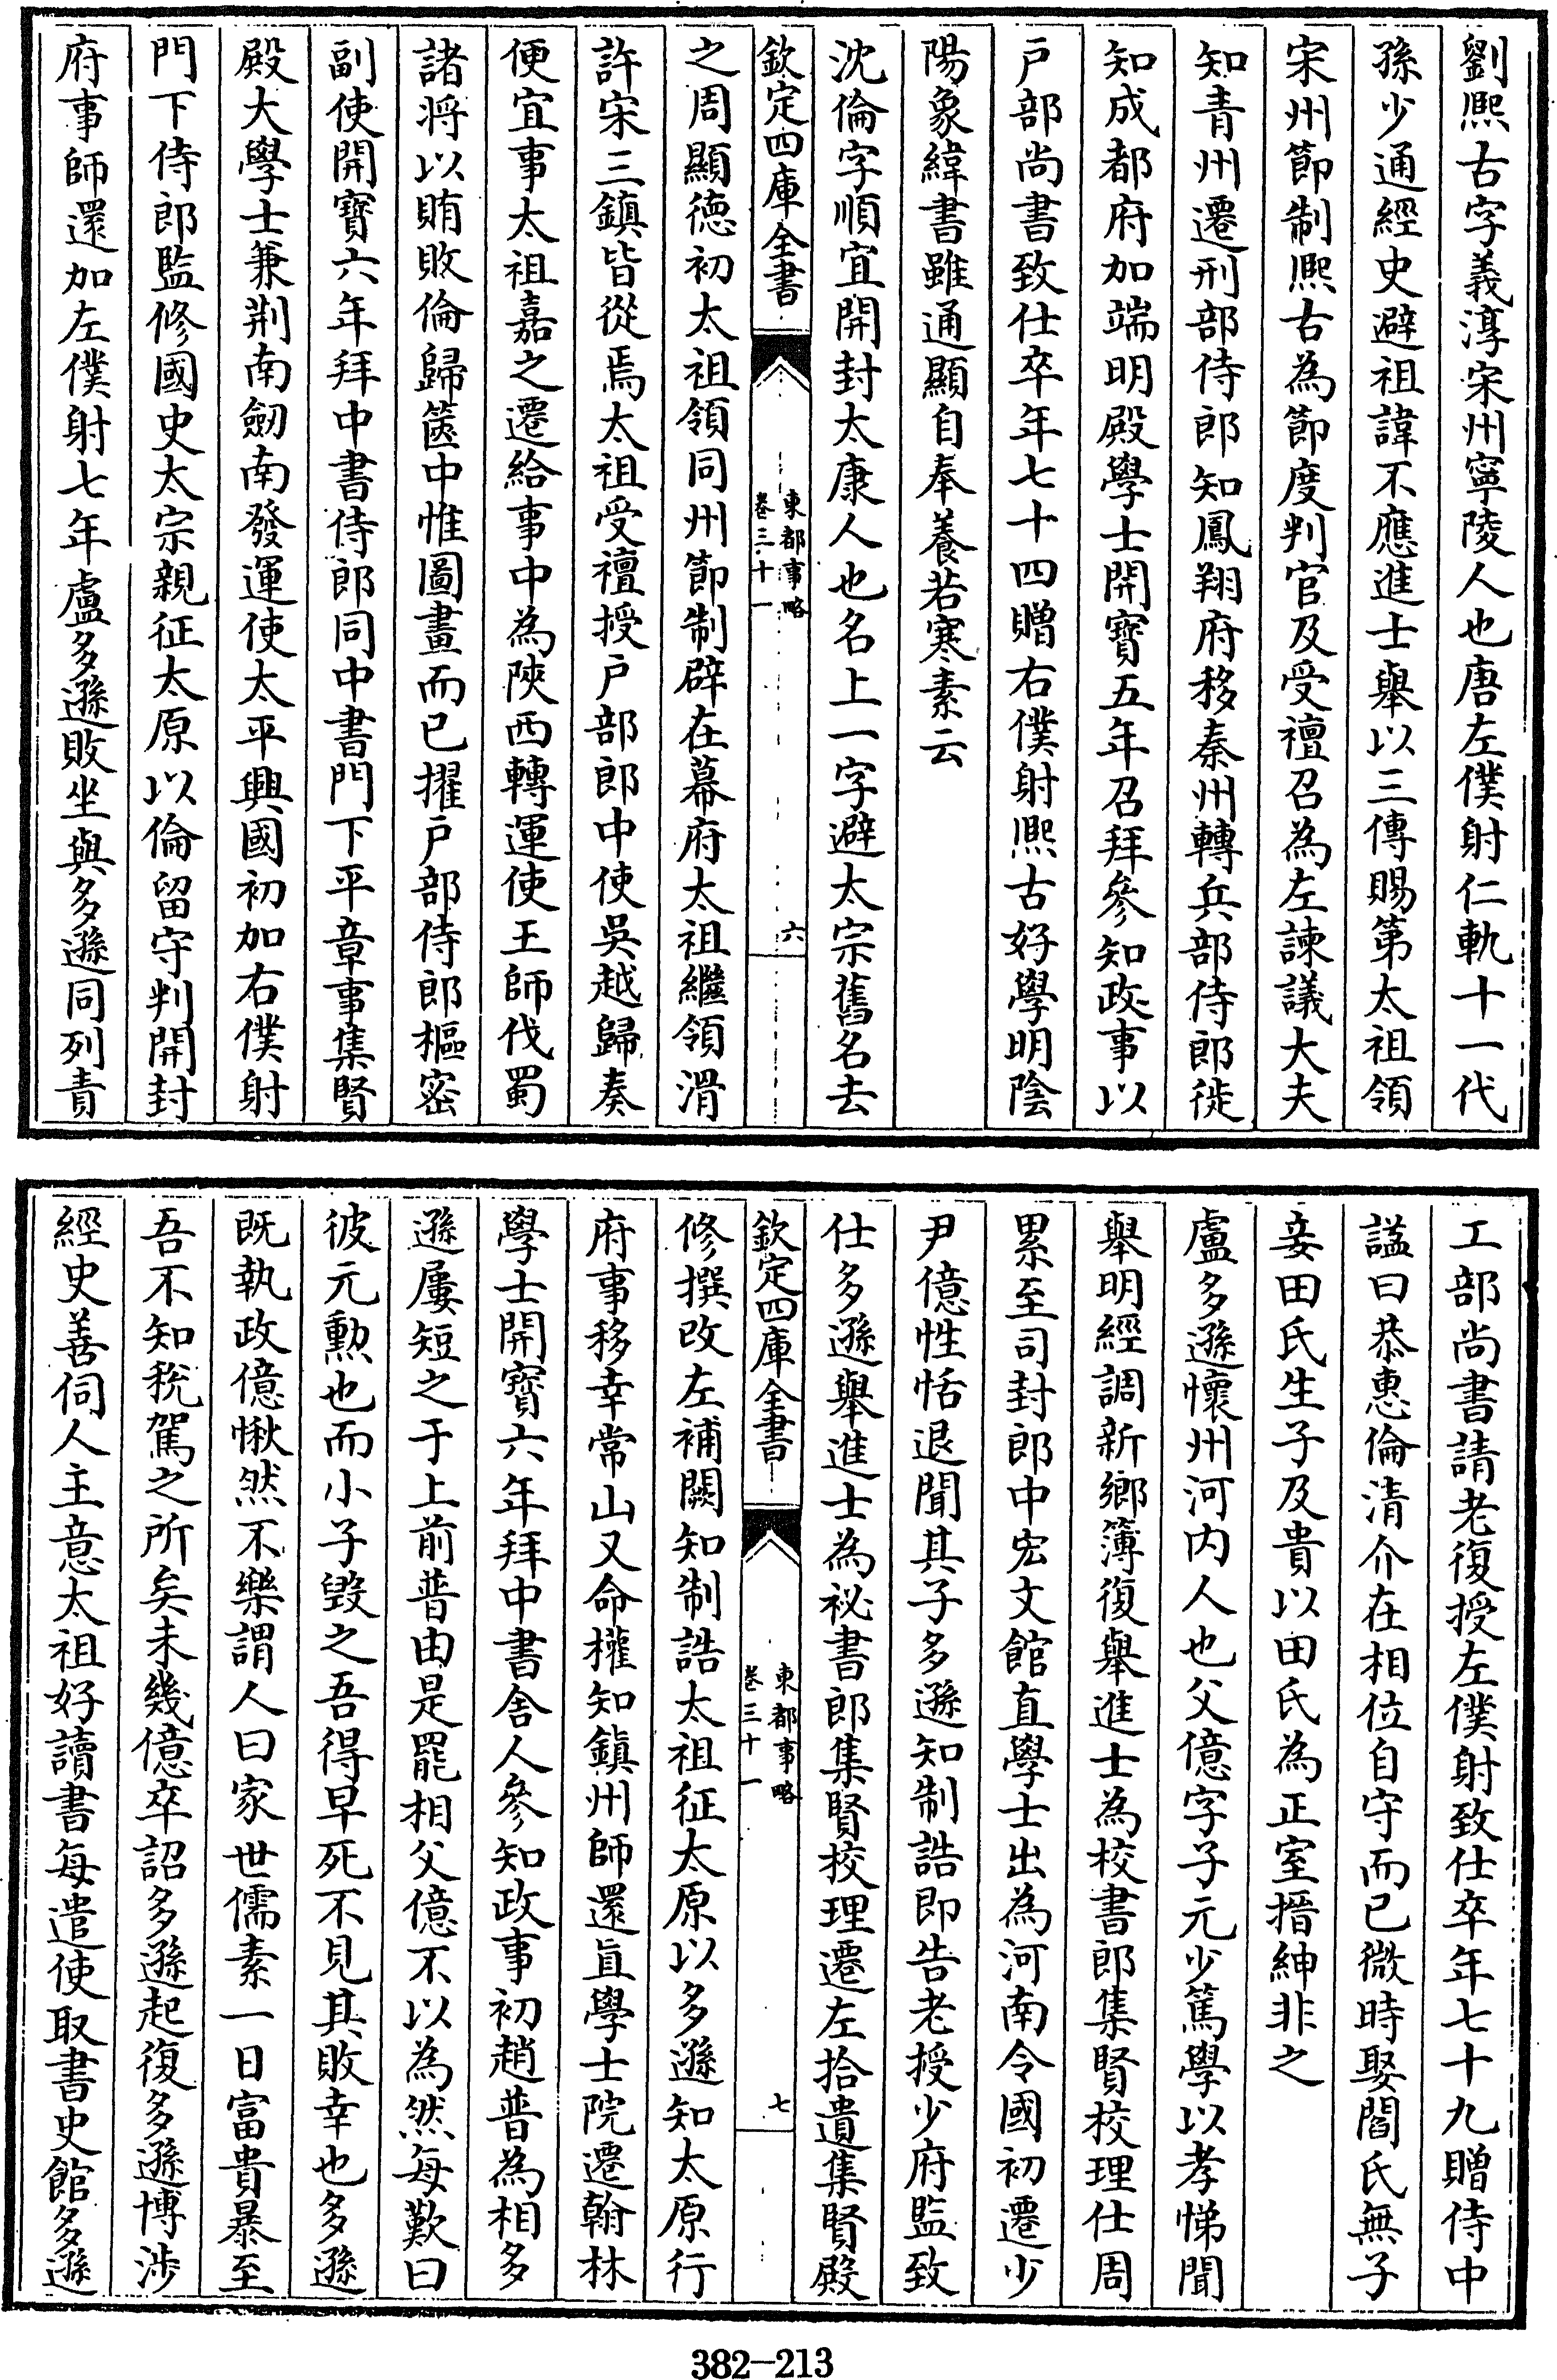 劉熈古字義淳宋州寧陵人也唐左僕射仁軌十一代
孫少通經史避祖諱不應進士舉以三傳賜第太祖領
宋州節制熈古為節度判官及受禪召為左諫議大夫
知青州遷刑部侍郎知鳳翔府移秦州轉兵部侍郎徙
知成都府加端明殿學士開寶五年召拜參知政事以
戸部尚書致仕卒年七十四贈右僕射熈古好學明陰
陽象緯書雖通顯自奉養若寒素云
沈倫字順宜開封太康人也名上一字避太宗舊名去
欽定四庫全書
東都事略
卷三十一
六
之周顯德初太祖領同州節制辟在幕府太祖繼領滑
許宋三鎮皆從焉太祖受禪授戸部郎中使吳越歸奏
便宜事太祖嘉之遷給事中為陝西轉運使王師伐蜀
諸將以賄敗倫歸篋中惟圖畫而已擢戸部侍郎樞密
副使開寶六年拜中書侍郎同中書門下平章事集賢
殿大學士兼荆南劒南發運使太平興國初加右僕射
門下侍郎監修國史太宗親征太原以倫留守判開封
府事師還加左僕射七年盧多遜敗坐與多遜同列責
工部尚書請老復授左僕射致仕卒年七十九贈侍中
諡曰恭惠倫清介在相位自守而已微時娶閻氏無子
妾田氏生子及貴以田氏為正室搢紳非之
盧多遜懷州河内人也父億字子元少篤學以孝悌聞
舉明經調新鄉簿復舉進士為校書郎集賢校理仕周
累至司封郎中宏文館直學士出為河南令國初遷少
尹億性恬退聞其子多遜知制誥即告老授少府監致
仕多遜舉進士為祕書郎集賢校理遷左拾遺集賢殿
欽定四庫全書
東都事略
卷三十一
七
修撰改左補闕知制誥太祖征太原以多遜知太原行
府事移幸常山又命權知鎮州師還直學士院遷翰林
學士開寶六年拜中書舍人參知政事初趙普為相多
遜屢短之于上前普由是罷相父億不以為然每歎曰
彼元勲也而小子毀之吾得早死不見其敗幸也多遜
既執政億愀然不樂謂人曰家世儒素一日富貴暴至
吾不知稅駕之所矣未幾億卒詔多遜起復多遜博涉
經史善伺人主意太祖好讀書每遣使取書史館多遜
382-213